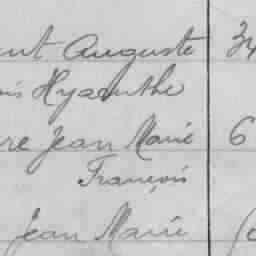 ent Auguste 34
is Hyacinthe
re Jean Marie 6
François
Jean Marie